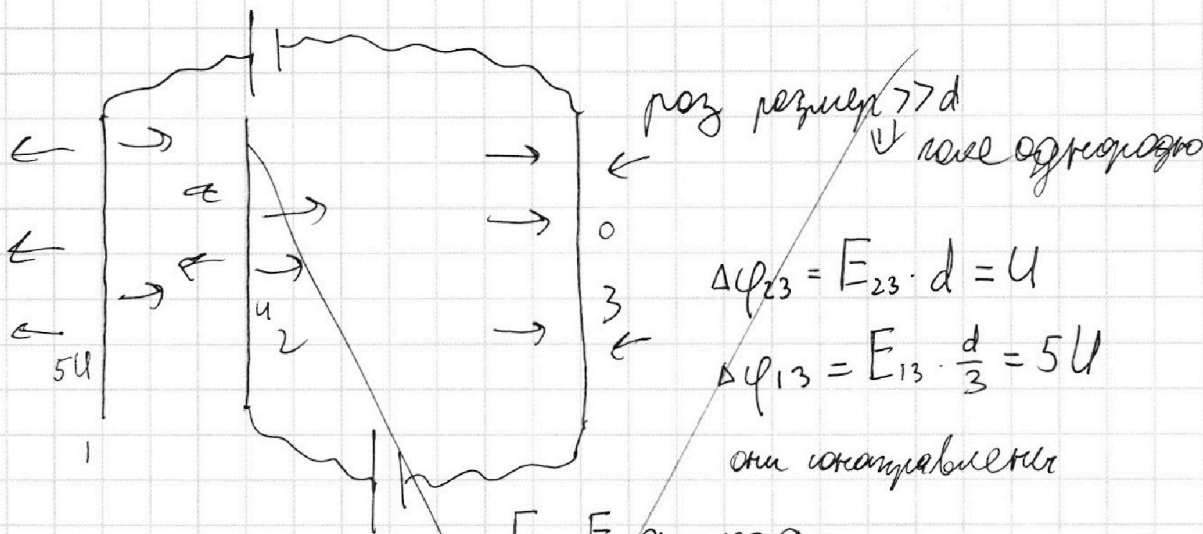 раз размер >> d
⇓ поле однородно
0
Δφ₂₃ = E₂₃ · d = U
3
u
2
5U
Δφ₁₃ = E₁₃ · d/3 = 5U
1
они сонаправлены